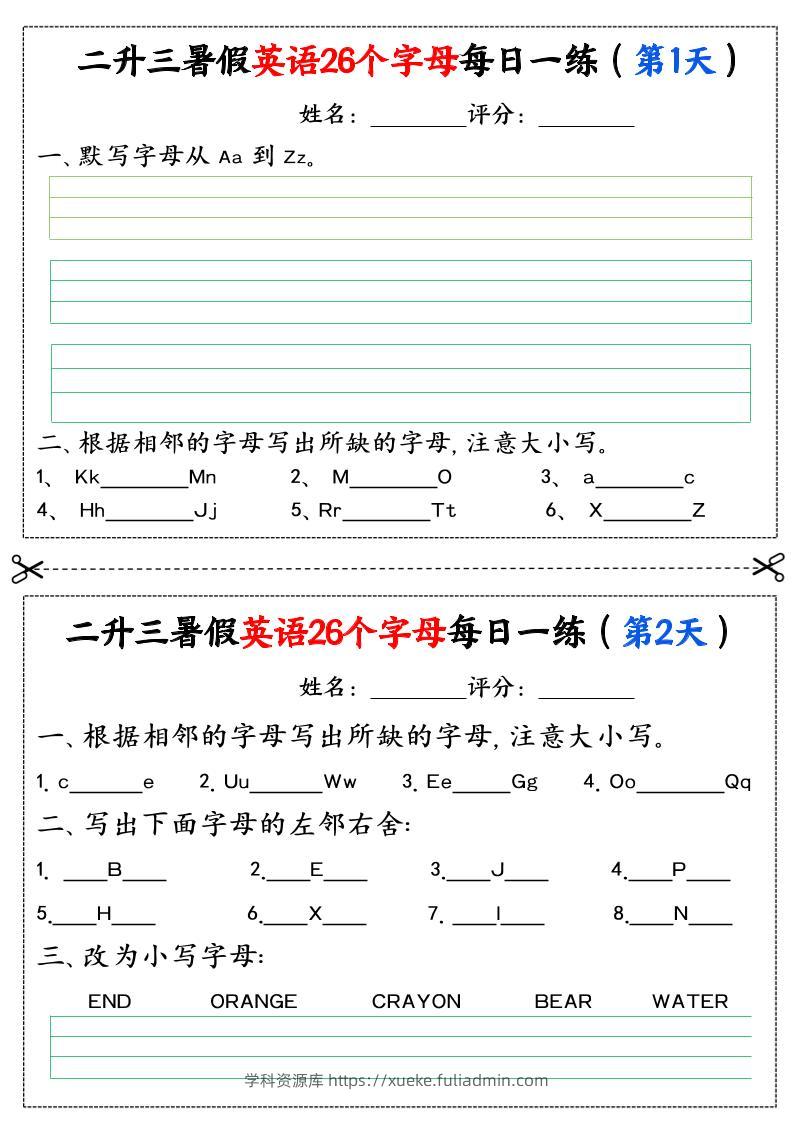 二升三暑假英语26个字母每日一练（第1天）
姓名：________评分：________
一、默写字母从 Aa 到 Zz。
二、根据相邻的字母写出所缺的字母，注意大小写。
1、 Kk________Mn 2、 M________O 3、 a________c
4、 Hh________Jj 5、Rr________Tt 6、 X________Z
二升三暑假英语26个字母每日一练（第2天）
姓名：________评分：________
一、根据相邻的字母写出所缺的字母，注意大小写。
1. c_______e 2. Uu_______Ww 3. Ee______Gg 4. Oo________Qq
二、写出下面字母的左邻右舍：
1. ____B____ 2.____E____ 3.____J____ 4.____P____
5.____H____ 6.____X____ 7. ____I____ 8.____N____
三、改为小写字母：
END ORANGE CRAYON BEAR WATER
学科资源库 https://xueke.fuliadmin.com